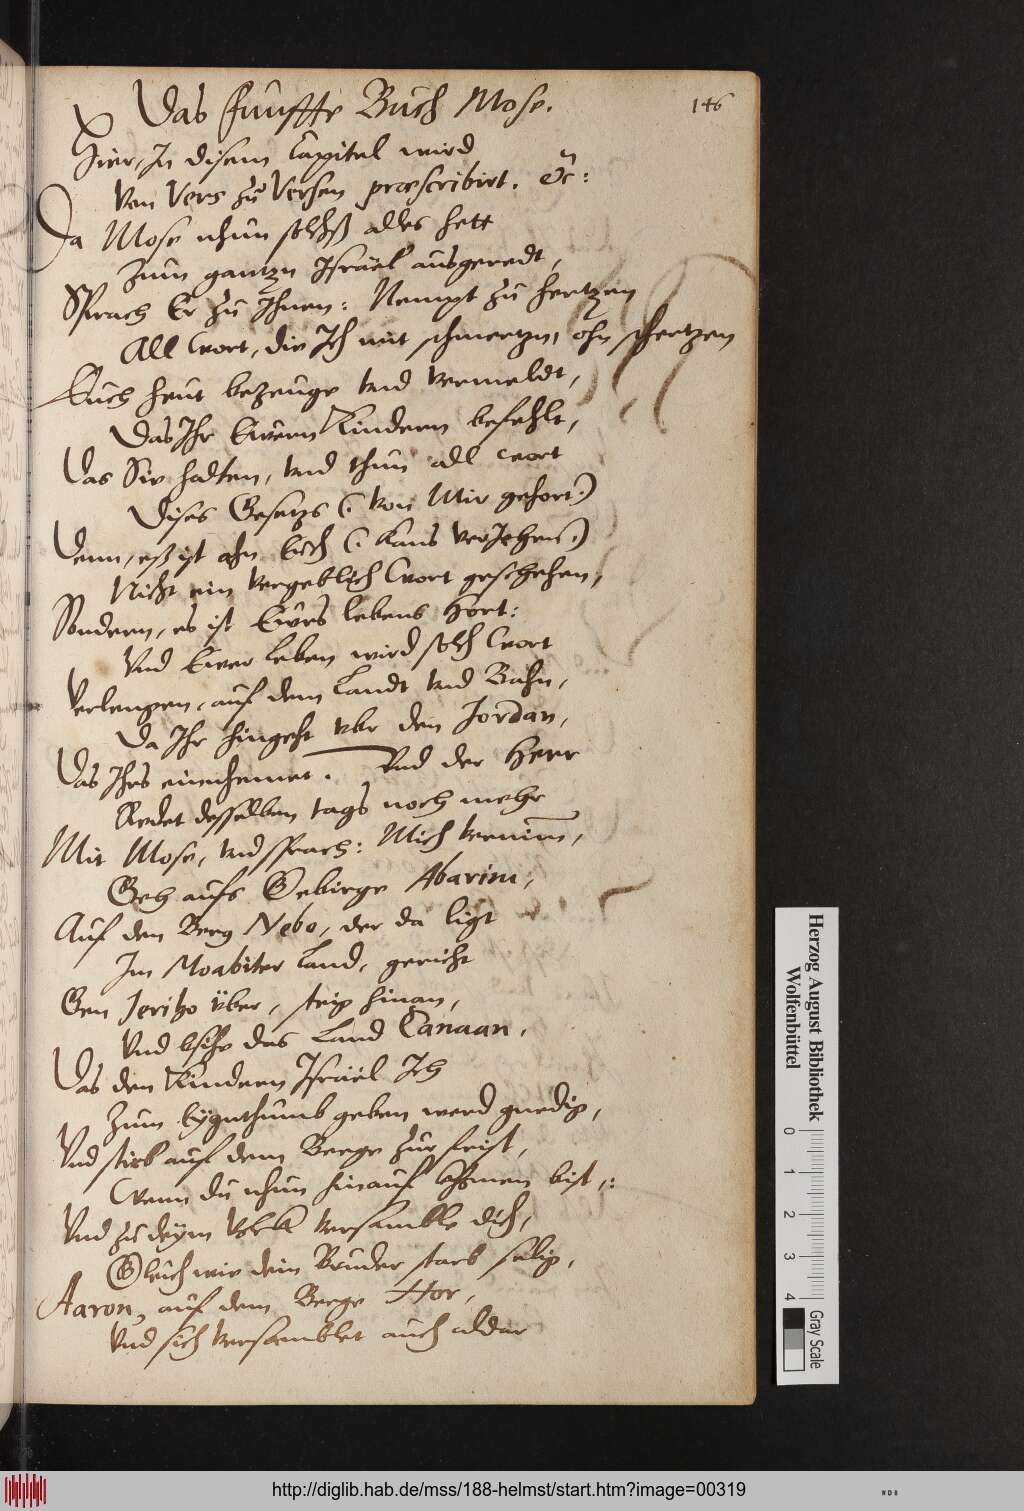 Das funffte Buch Mose.
146
Hier, In disem Capitel wird
Von Vers zu Versen præscribirt. &c:
Da Mose nhun solchs alles hett
Zum gantzn Israël ausgeredt,
Sprach Er zu Ihnen: Nempt zu hertzen
All Wort, die Ich mit schmertzn, ohn schertzen
Euch heut bezeuge vnd vermeldt,
Das Ihr Ewern Kindern befehlt,
Das Sie halten, vnd thun all wort
Dises Gesetzs (: von Mir gehort:)
Denn, eß ist ahn Euch (: kans verJehen:)
Nicht ein vergeblich Wort geschehen,
Sondern, es ist Ewrs lebens Hort:
Vnd Ewer leben wird solch Wort
Verlengen, auf dem Landt vnd Bahn,
Da Ihr hingeht vbr den Jordan,
Das Ihrs einnhemet. Vnd der Herr
Redet desselben tags noch mehr
Mit Mose, vnd sprach: Mich vernim,
Geh aufs Gebirge Abarim,
Auf den Berg Nebo, der da ligt
Im Moabiter Land, gericht
Gen Jeriho über, steig hinan,
Vnd bsihe das Land Canaan,
Das den Kindern Israël Ich
Zum Eÿgnthumb geben werd gnedig,
Vnd stirb auf dem Berge zur frist,
Wenn du nhun hinauf kommen bist,:
Vnd zu deÿm Volck versamble dich,
Gleich wie dein Bruder starb selig,
Aaron, auf dem Berge Hor,
Vnd sich versamblet auch aldar
Herzog August Bibliothek
Wolfenbüttel
0 1 2 3 4
Gray Scale
http://diglib.hab.de/mss/188-helmst/start.htm?image=00319